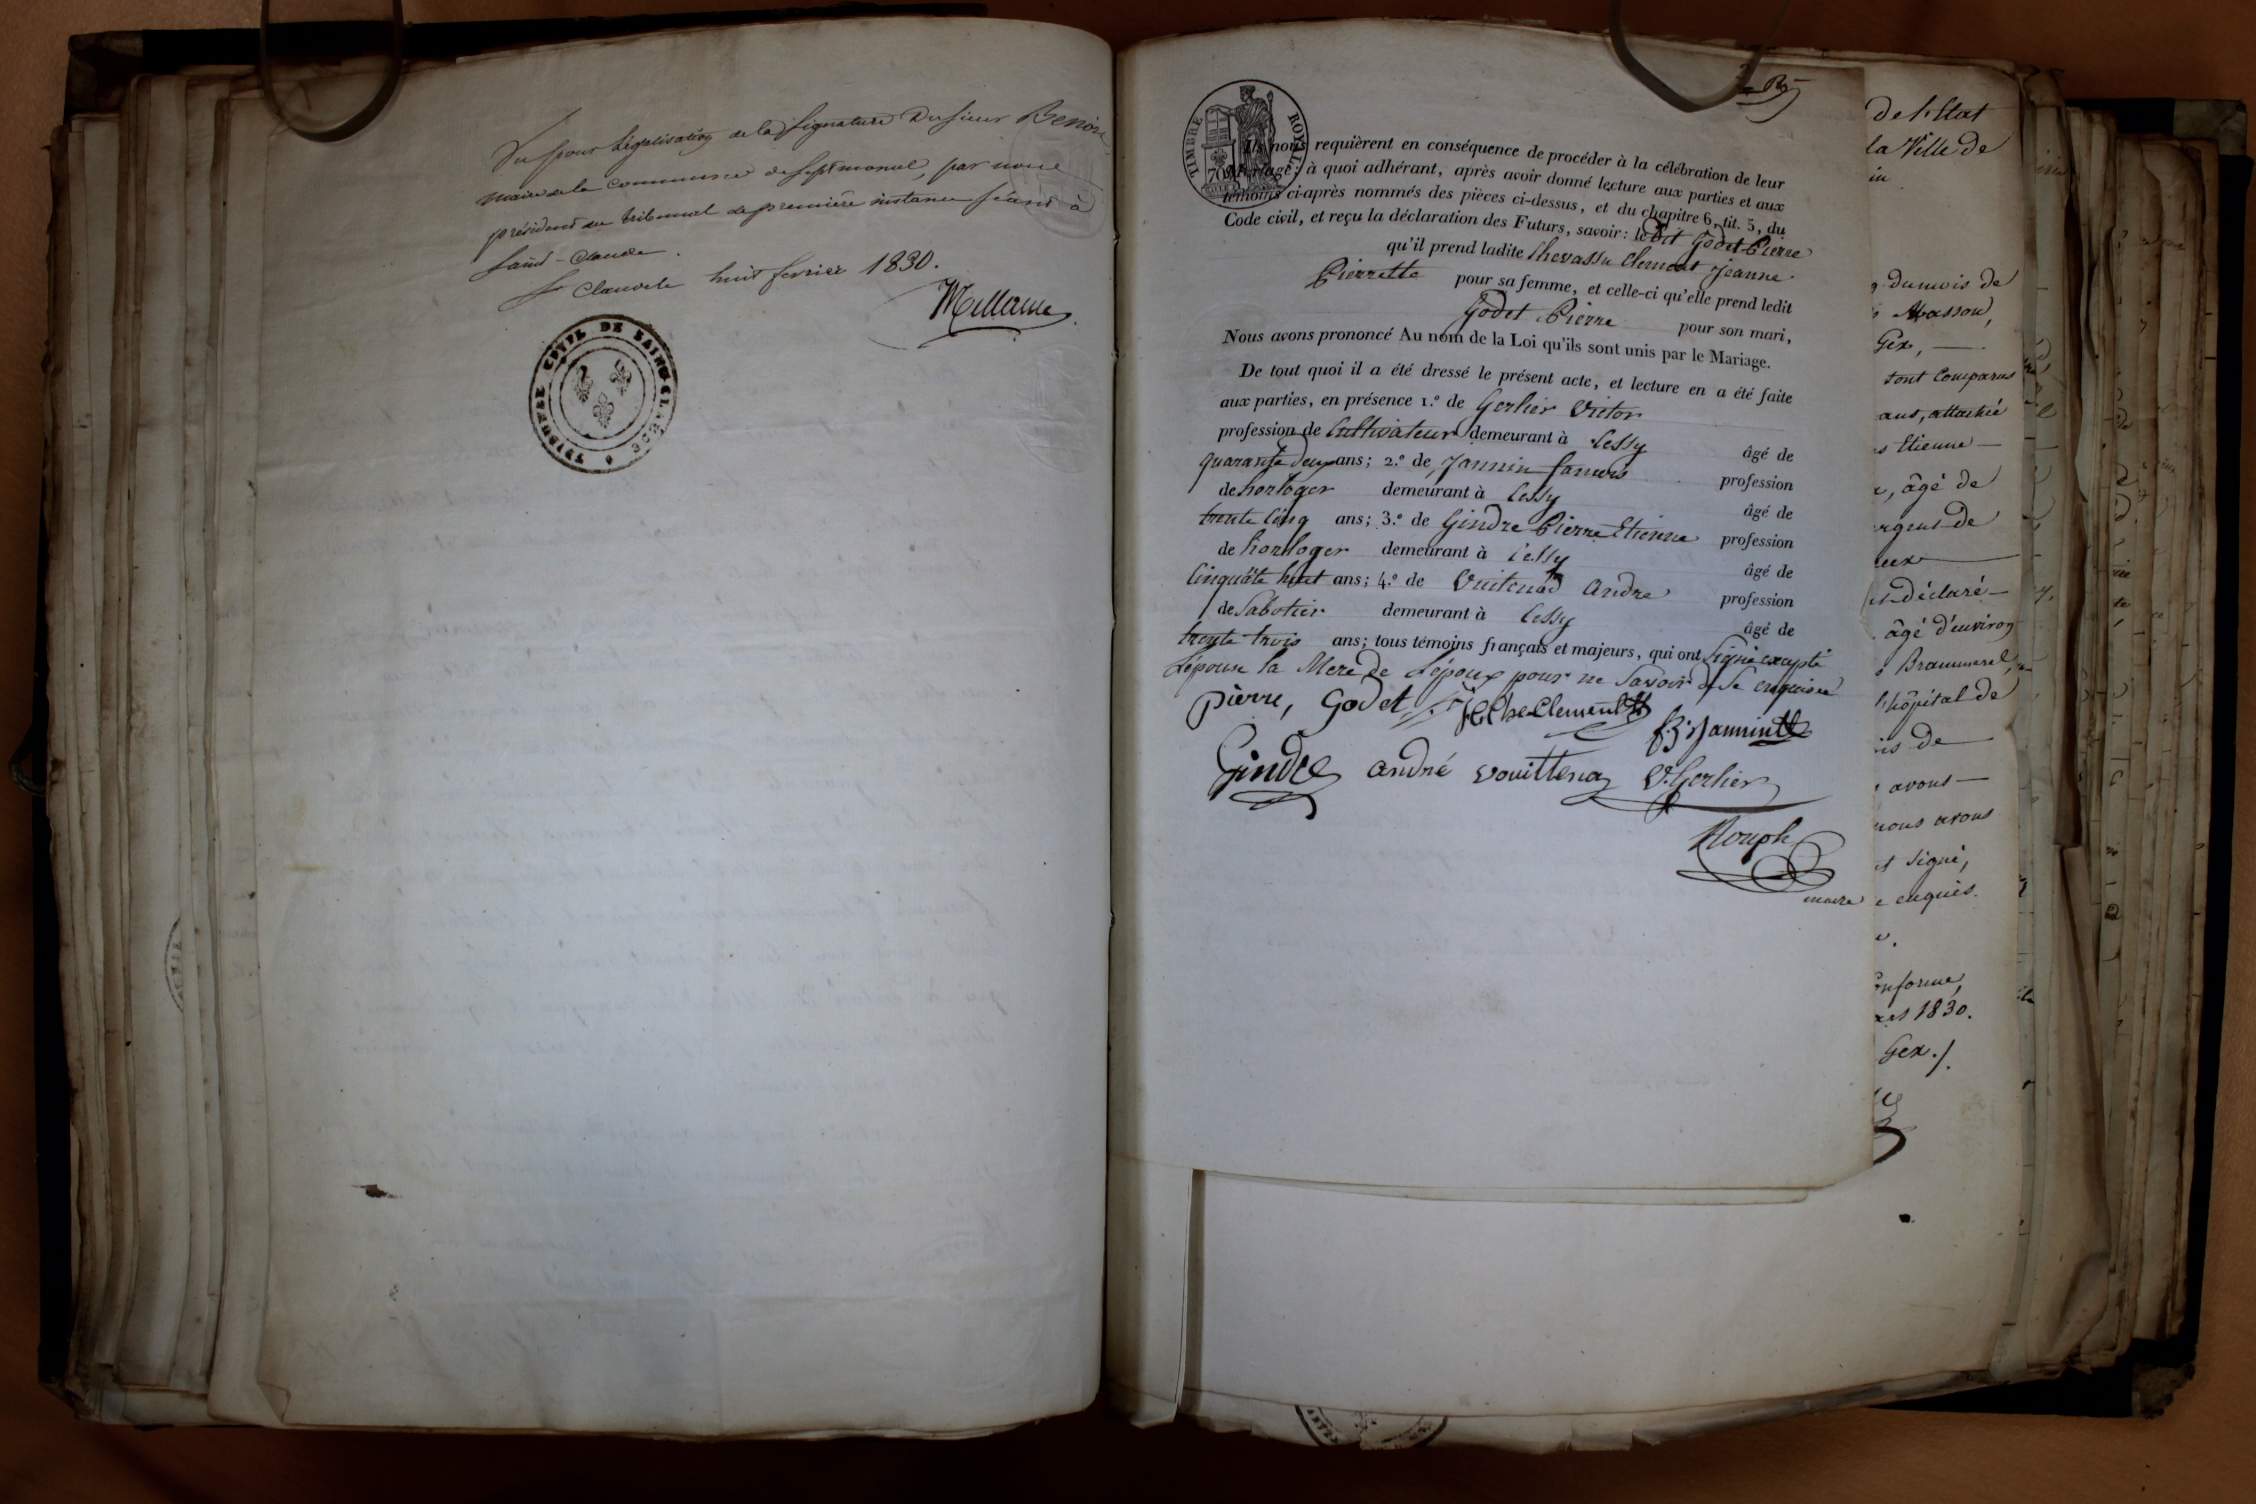 Vu pour Légalisation de la Signature Du Sieur Benoit
maire de la Commune de Septmoncel, par nous
président du tribunal de première instance séant à
Saint-Claude.
St Claude le huit fevrier 1830.
TRIBUNAL CIVIL DE SAINT-CLAUDE
TIMBRE ROYAL
70
Ils nous requièrent en conséquence de procéder à la célébration de leur
Mariage; à quoi adhérant, après avoir donné lecture aux parties et aux
témoins ci-après nommés des pièces ci-dessus, et du chapitre 6, tit. 5, du
Code civil, et reçu la déclaration des Futurs, savoir: ledit Godet Pierre
qu'il prend ladite Chevassu Clement Jeanne
Pierrette pour sa femme, et celle-ci qu'elle prend ledit
Godet Pierre pour son mari,
Nous avons prononcé Au nom de la Loi qu'ils sont unis par le Mariage.
De tout quoi il a été dressé le présent acte, et lecture en a été faite
aux parties, en présence 1.º de Gerlier Victor
profession de Cultivateur demeurant à Lessy âgé de
quarante deux ans; 2.º de Jannin profession
de horloger demeurant à Lessy âgé de
trente cinq ans; 3.º de Gindre Pierre Etienne profession
de horloger demeurant à Lessy âgé de
Cinquāte huit ans; 4.º de Vuitenad André profession
de Sabotier demeurant à Lessy âgé de
trente trois ans; tous témoins français et majeurs, qui ont Signé excepté
L'épouse la Mere de L'époux pour ne Savoir de ce enquise
pierre, Godet Clement
Jannin
Gindre andré vouittenaz V. Gerlier
Rouph
maire
de l'Etat
la Ville de
du mois de
Masson,
Gex,
sont Comparus
ans, attaché
Etienne
, âgé de
de
déclaré
âgé d'environ
l'hôpital de
de
avons
nous avons
signé,
enquis.
1830.
Gex./.